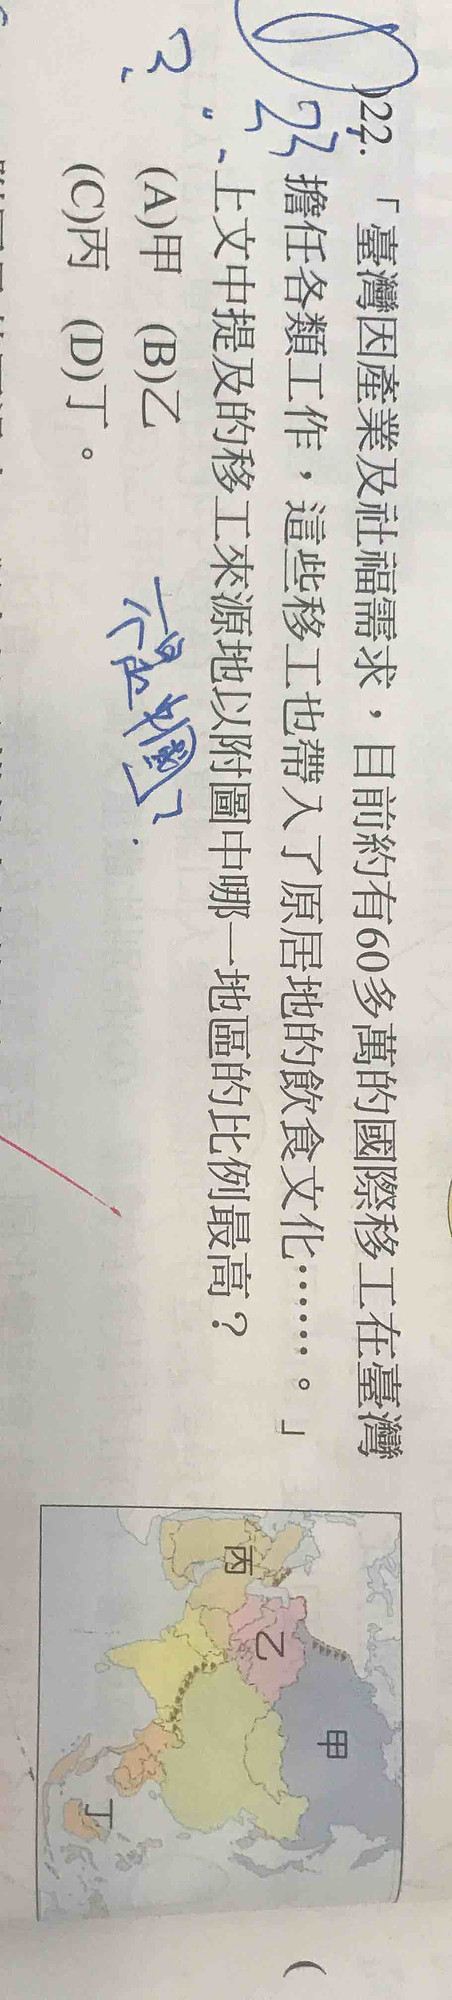 )22.「臺灣因產業及社福需求，目前約有60多萬的國際移工在臺灣
擔任各類工作，這些移工也帶入了原居地的飲食文化……。」
上文中提及的移工來源地以附圖中哪一地區的比例最高？
(A)甲　(B)乙
(C)丙　(D)丁。
甲
乙
丙
丁
23
?
(